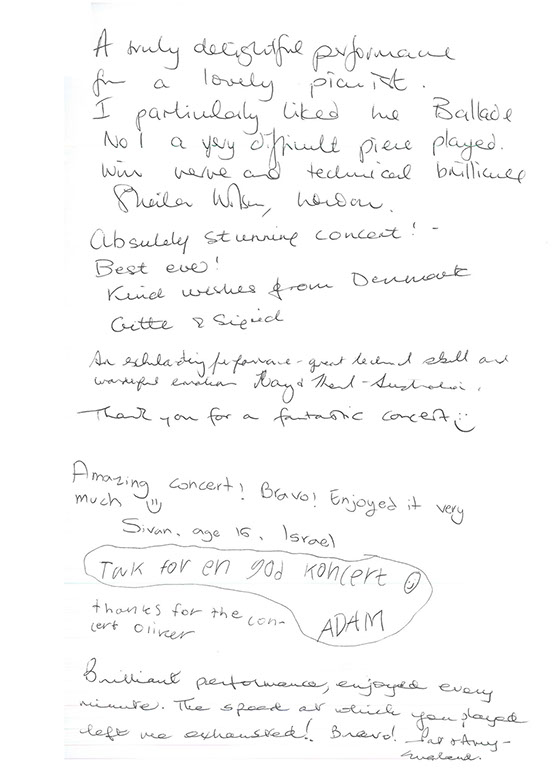 A truly delightful performance
for a lovely pianist.
I particularly liked the Ballade
No 1 a very difficult piece played.
with verve and technical brilliance
Sheila London.
Absolutely stunning concert! -
Best ever!
Kind wishes from Denmark
Gitte & Sigrid
An exhilarating performance - great technical skill and
wonderful emotion - Australia.
Thank you for a fantastic concert
Amazing concert! Bravo! Enjoyed it very
much
Sivan, age 16, Israel
Tak for en god koncert
ADAM
thanks for the con-
cert Oliver
Brilliant performance, enjoyed every
minute. The speed at which you played
left me exhausted! Bravo! Pat & Amy -
England.